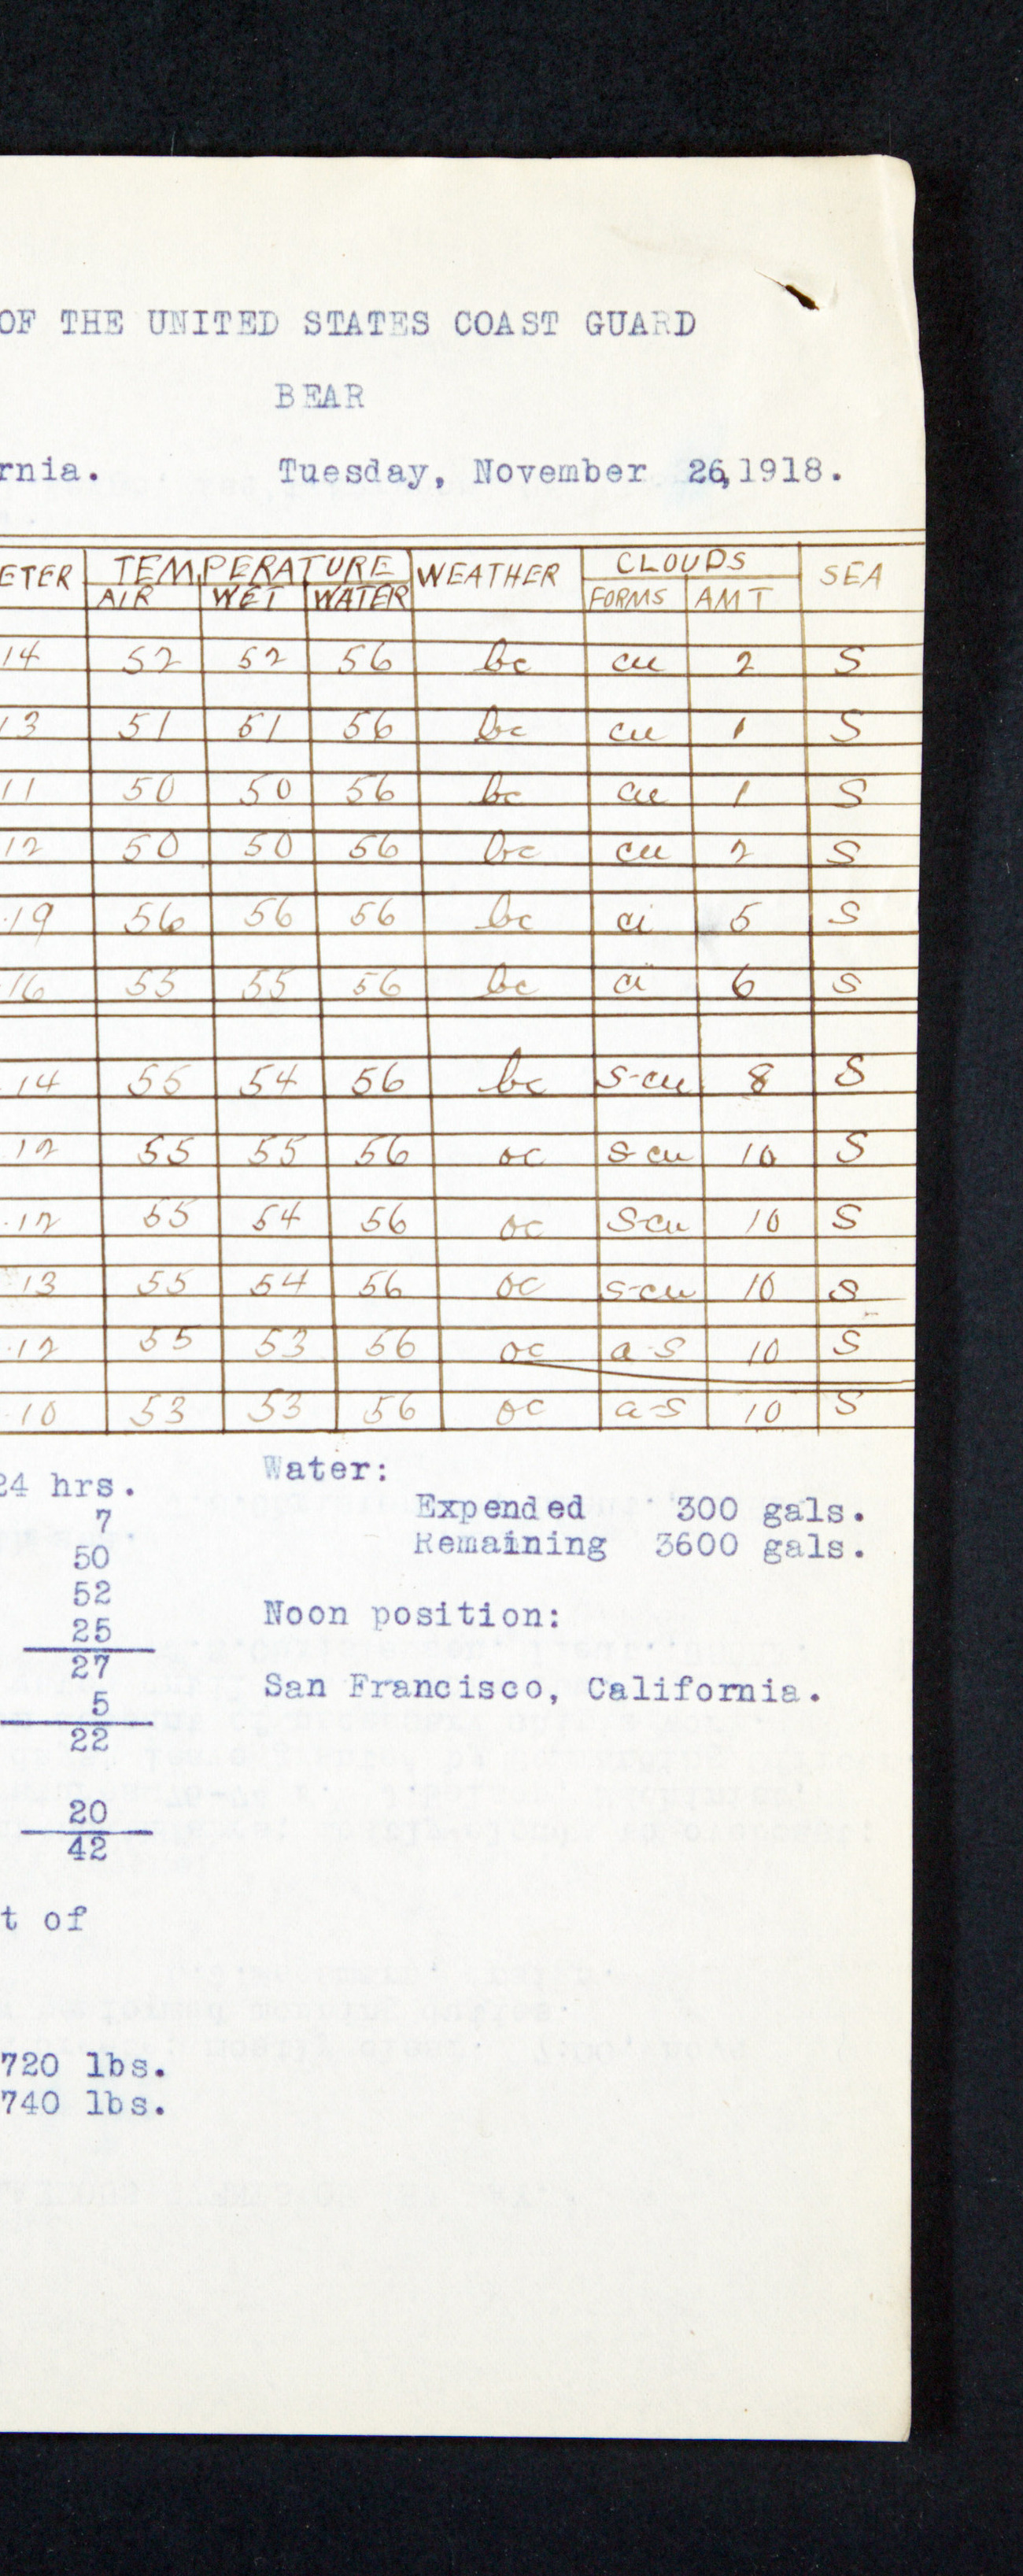 OF THE UNITED STATES COAST GUARD
BEAR
rnia. Tuesday, November 26,1918.
ETER TEMPERATURE WEATHER CLOUDS SEA
AIR WET WATER FORMS AMT
14 52 52 56 bc cu 2 S
13 51 51 56 bc cu 1 S
11 50 50 56 bc cu 1 S
12 50 50 56 bc cu 2 S
.19 56 56 56 bc ci 5 S
16 55 55 56 bc ci 6 S
.14 55 54 56 bc S-cu 8 S
12 55 55 56 oc S-cu 10 S
.12 55 54 56 oc S-cu 10 S
13 55 54 56 oc S-cu 10 S
.12 55 53 56 oc a-S 10 S
.10 53 53 56 oc a-S 10 S
24 hrs.
7
50
52
25
27
5
22
20
42
t of
720 lbs.
740 lbs.
Water:
Expended 300 gals.
Remaining 3600 gals.
Noon position:
San Francisco, California.